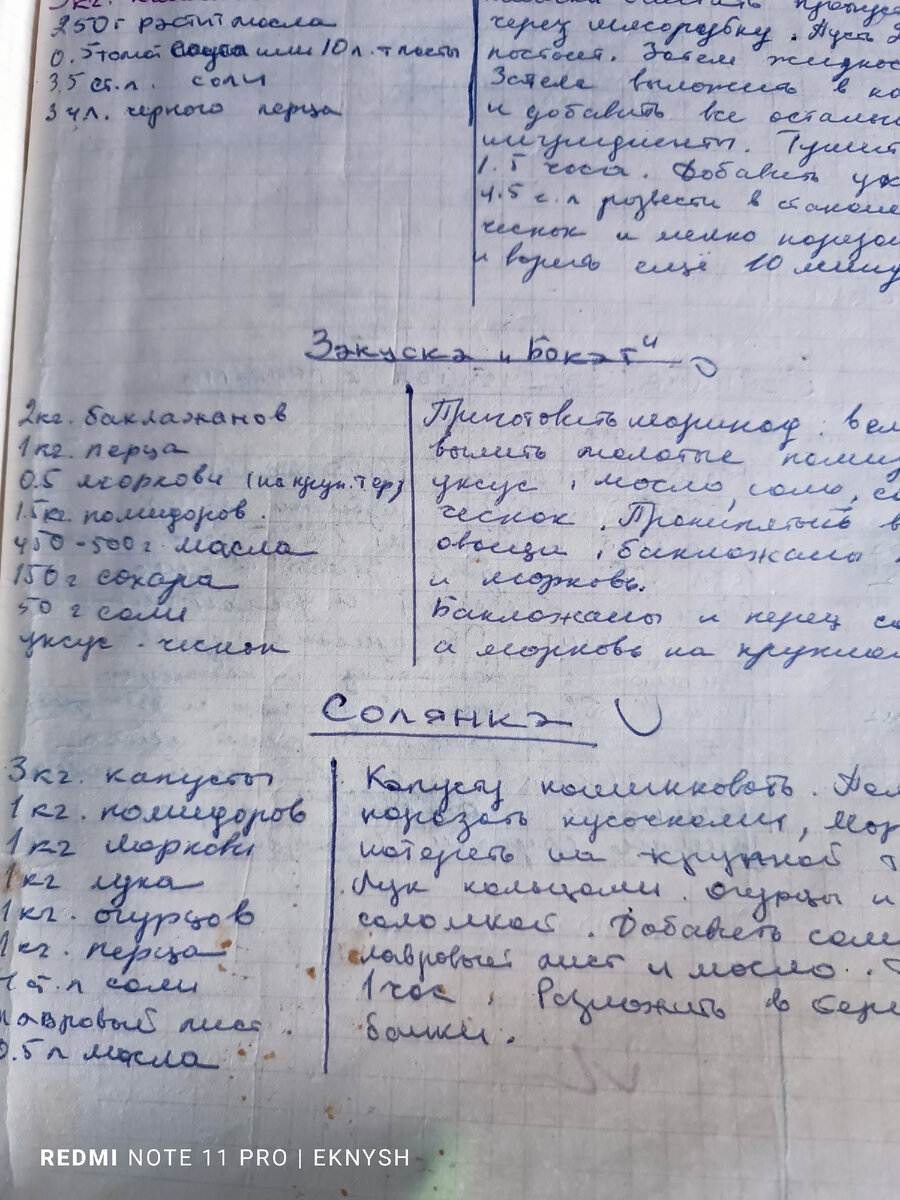 250 г растит масла
0.5 томат соуса или 10 л. т пасты
3.5 ст. л. соли
3 ч л. черного перца
через мясорубку. Пусть
постоит. Затем жидкос
Затем выложить в ка
и добавить все осталь
ингридиенты. Тушит
1.5 часа. Добавить укс
4.5 с. л развести в стакане
чеснок и мелко пореза
и варить ещё 10 мину
Закуска "Бокат"
2кг. баклажанов
1кг. перца
0.5 моркови (на круп. тер)
1.5кг. помидоров.
450-500 г. масла
150 г сахара
50 г соли
уксус. чеснок
Приготовить маринад. в
вылить молотые помид
уксус, масло, соль, са
чеснок. Прокипятыть в
овощи, баклажаны
и морковь.
Баклажаны и перец со
а морковь на крупно
Солянка
3кг. капусты
1кг. помидоров
1кг моркови
1кг лука
1кг. огурцов
1кг. перца
1 ст. л соли
лавровый лист.
0.5 л масла
Капусту нашинковать. Пом
порезать кусочками, мор
натереть на крупной т
Лук кольцами. огурцы и
соломкой. Добавить соль
лавровый лист и масло.
1 час. Разложить в стери
банки.
REDMI NOTE 11 PRO | EKNYSH